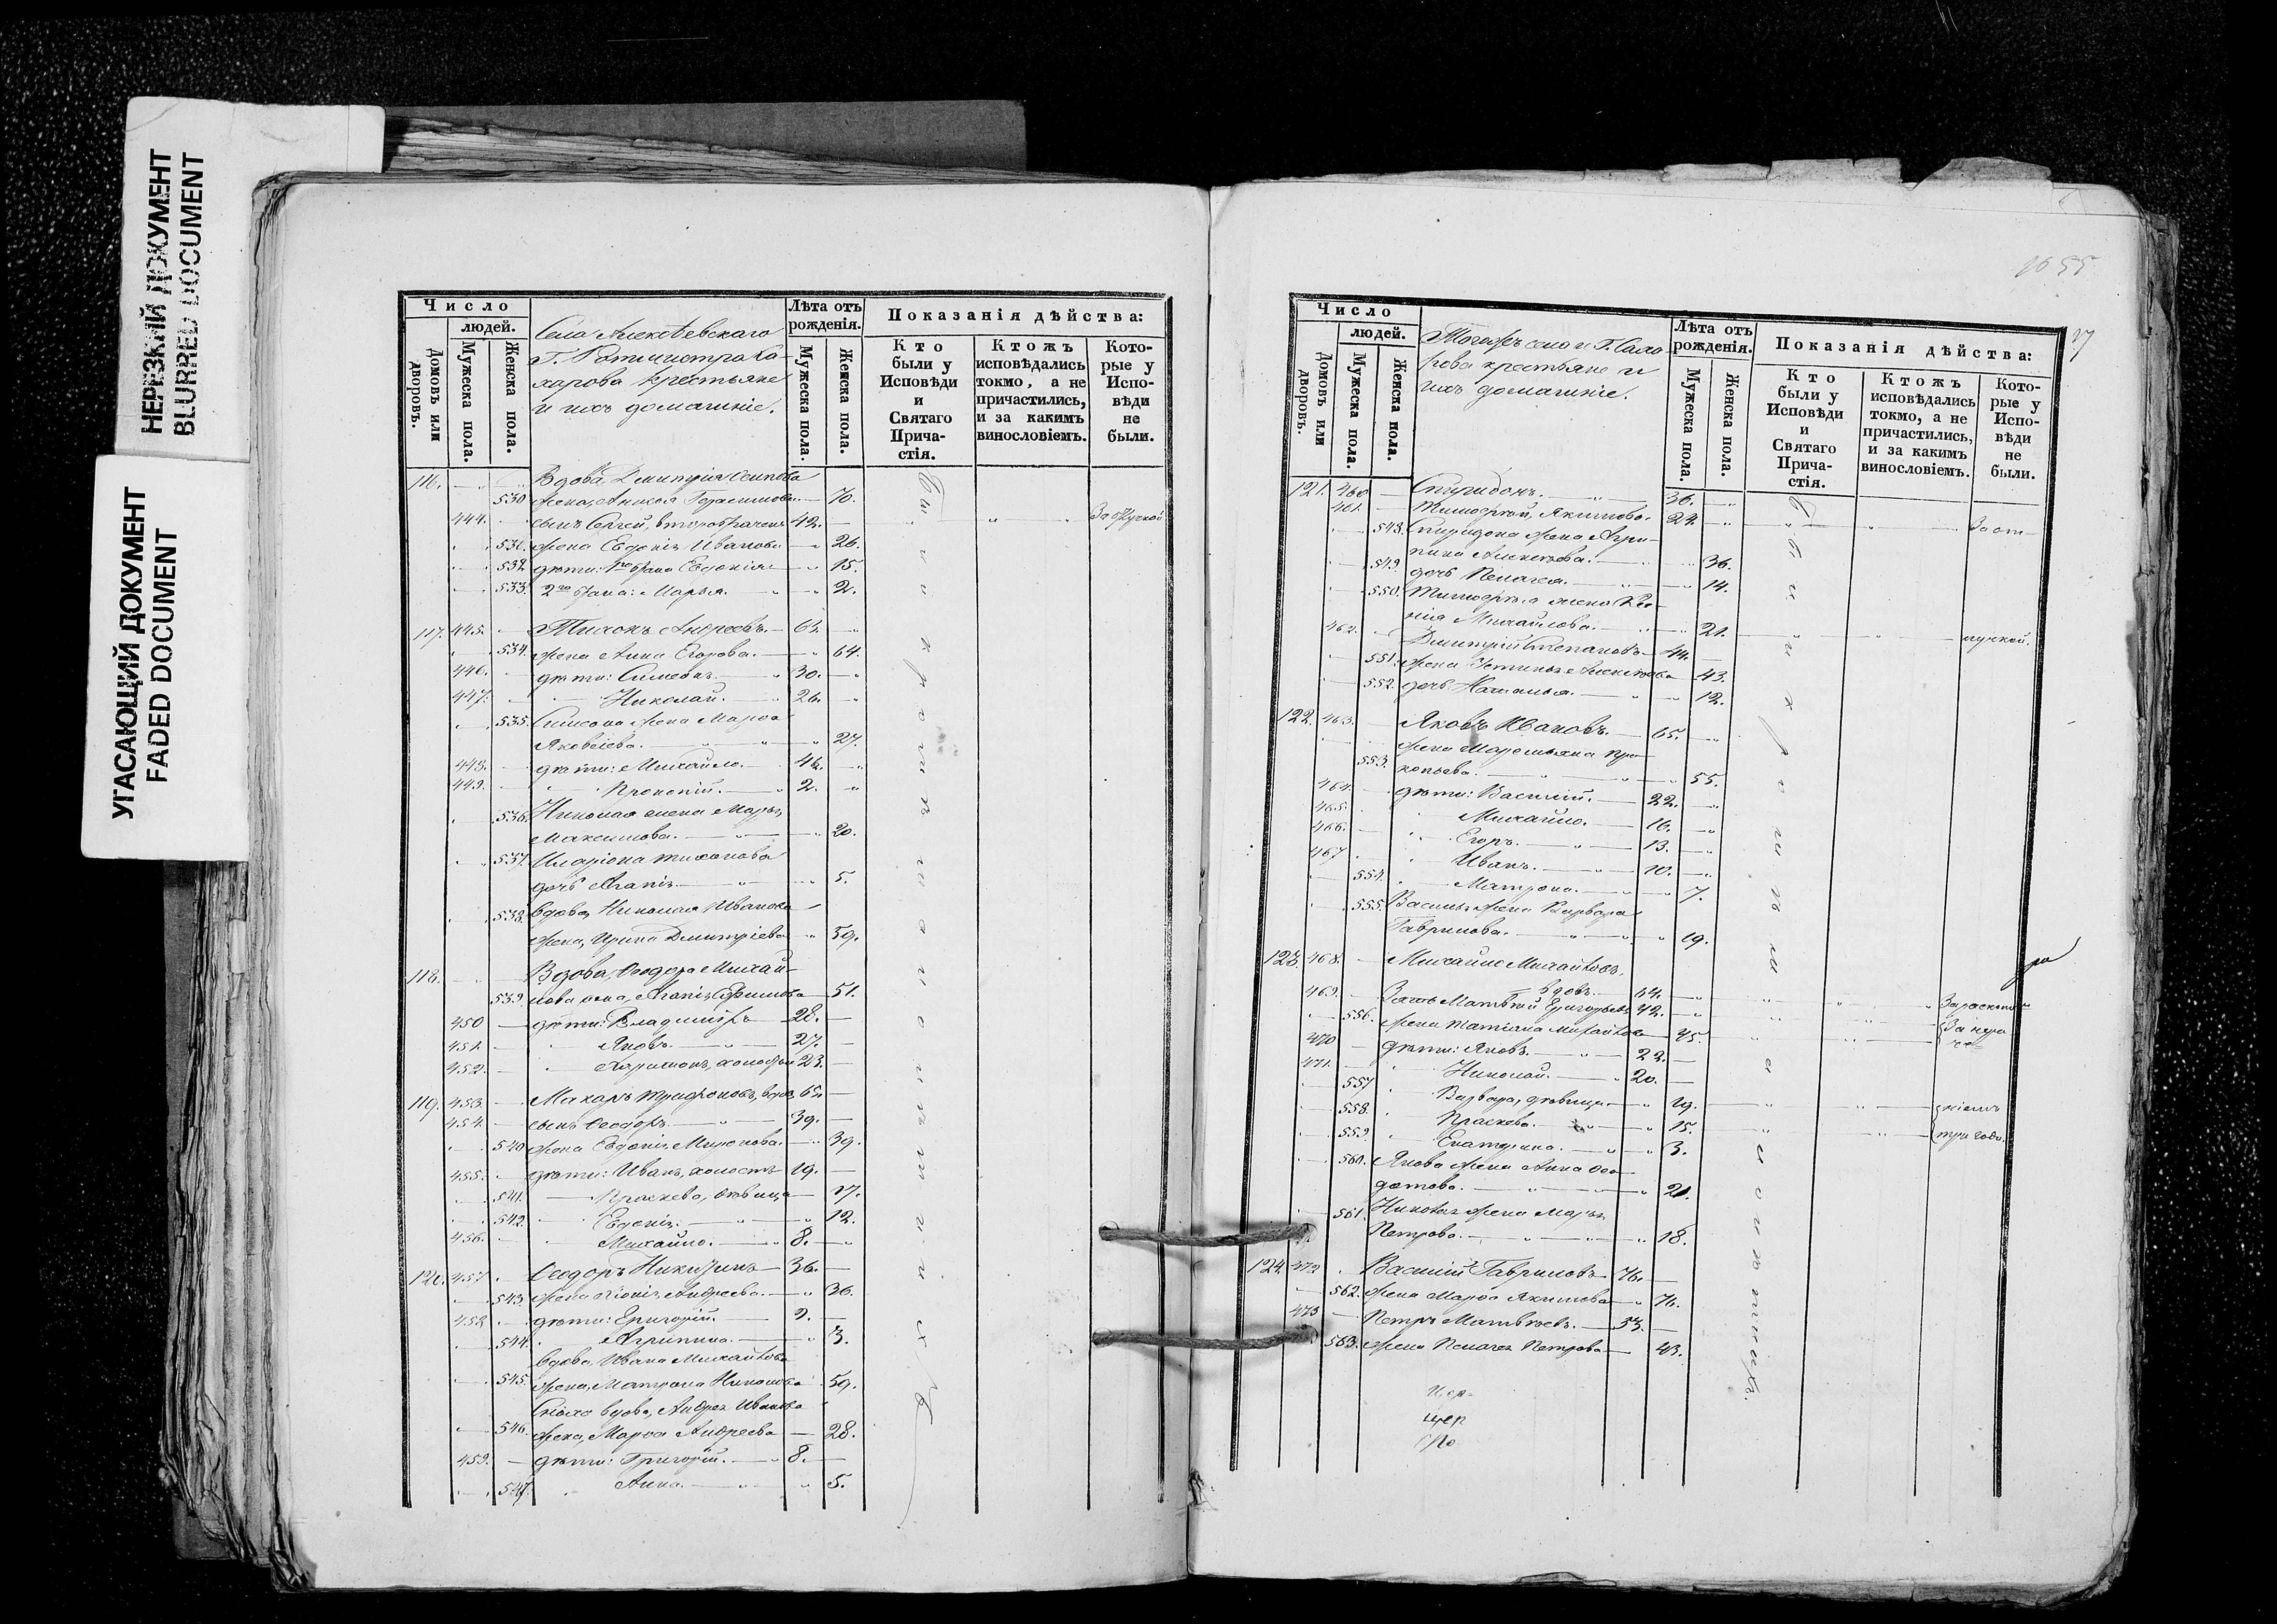 НЕРЕЗКИЙ ДОКУМЕНТ
BLURRED DOCUMENT
УГАСАЮЩИЙ ДОКУМЕНТ
FADED DOCUMENT
Число
людей.
Домовъ или дворовъ.
Мужеска пола.
Женска пола.
Села Алексѣевскаго
Г. Ротмистра Са-
харова крестьяне
и ихъ домашніе.
Лѣта отъ рожденія.
Мужеска пола.
Женска пола.
Показанія дѣйства:
Кто были у Исповѣди и Святаго Прича-стія.
Ктожъ исповѣдались токмо, а не причастились, и за какимъ винословіемъ.
Кото-рые у Испо-вѣди не были.
116. Вдова Димитрія Осипова
530 жена, Анисья Герасимова 70.
444. сынъ Сергей, второбраченъ 42. За отлучкой
531. жена Евдокія Иванова 26.
532. дѣти: 1го брака Евдокія 15.
533. 2го брака: Марья. 2.
117. 445. Тихонъ Андреевъ. 63.
534. жена Анна Егорова. 64.
446. дѣти: Симеонъ. 30.
447. Николай. 26.
535. Симеона жена Марѳа
Яковлева. 27.
448. дѣти: Михайло.
449. Прокопій. 2.
536. Николая жена Марья
Максимова. 20.
537. Иларіона Тихонова
дочь Агапія 5.
538. Вдова, Николая Иванова
жена, Ирина Димитріева 59.
118. Вдова, Ѳеодора Михай-
539. лова жена, Агапія Ефимова 51.
450 дѣти: Владиміръ 28.
451. Яковъ. 27.
452. Харитонъ, холостой 23.
119. 453. Макаръ Трифоновъ, вдов. 65.
454. сынъ Ѳеодоръ. 39.
540 жена Евдокія Миронова. 39.
455. дѣти: Иванъ, холостъ 19.
541. Праскева, дѣвица 17.
542. Евдокія. 12.
456. Михайло. 8.
120. 457. Ѳеодоръ Никитинъ 36.
543. жена Андреева. 36.
458. дѣти: Григорій.
544. Агрипина. 3.
Вдова, Ивана Михайлова
545. жена, Матрона Никонова 59.
Сноха вдова, Андрея Иванова
546. жена, Марѳа Андреева 28.
459. дѣти: Григорій. 8.
547. Анна. 5.
Число
людей.
Домовъ или дворовъ.
Мужеска пола.
Женска пола.
Тогожъ села Г. Саха-
рова крестьяне и
ихъ домашніе.
Лѣта отъ рожденія.
Мужеска пола.
Женска пола.
Показанія дѣйства:
Кто были у Исповѣди и Святаго Прича-стія.
Ктожъ исповѣдались токмо, а не причастились, и за какимъ винословіемъ.
Кото-рые у Испо-вѣди не были.
121. 460 Спиридонъ. 36.
461. Тимофей, Якимовы. 22. За от-
548. Спиридона жена Агри-
пина Алексѣева. 36.
549. дочь Пелагея. 14.
550. Тимофея жена
Михайлова. 21. лучкой.
462. Димитрій Степановъ 44.
551. жена Устинья Алексѣева 43.
552. дочь Наталья. 12.
122. 463. Яковъ Ивановъ. 65.
жена Маремьяна Про-
553. копьева. 55.
464. дѣти: Василій. 22.
465. Михайло. 16.
466. Егоръ. 13.
467 Иванъ. 10.
554. Матрона. 7.
555. Василья жена Варвара
Гаврилова. 19.
123. 468. Михайло Михайловъ,
вдовъ. 64. За расколомъ
469. Зять Матвѣй Григорьевъ 42.
556. жена Татіана Михайлова 45.
470 дѣти: Яковъ. 22.
471. Николай. 20.
557 Варвара, дѣвица 19.
558. Праскева. 15.
559. Екатерина. 3. три года.
560. Якова жена Анна Ѳео-
дотова. 20.
561. Николая жена Марья
Петрова. 18.
124. 472 Василій Гавриловъ 76.
562. жена Марѳа Якимова 76.
473 Петръ Матвѣевъ. 53.
563. жена Пелагея Петрова 43.